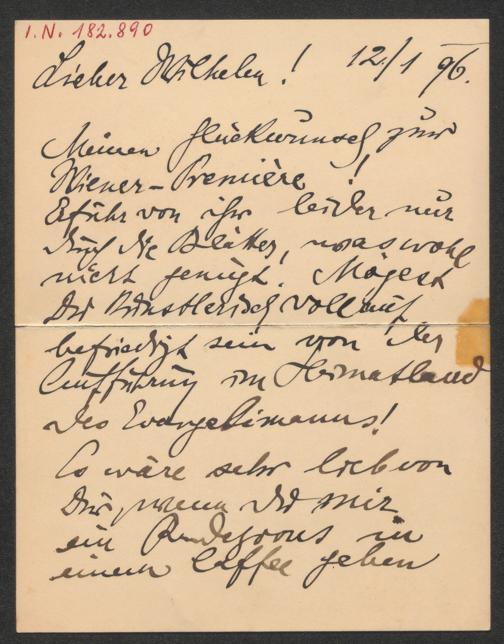 I.N. 182.890
Lieber Wilhelm! 12/1 96.
Meinen Glückwunsch zur
Wiener-Première!
Erfuhr von ihr leider nur
durch die Blätter, was wohl
nicht genügt. Mögest
Du künstlerisch vollauf
befriedigt sein von der
Aufführung im Heimatland
des Evangelimanns!
Es wäre sehr lieb von
Dir, wenn Du mir
ein Rendezvous in
einem Caffee geben